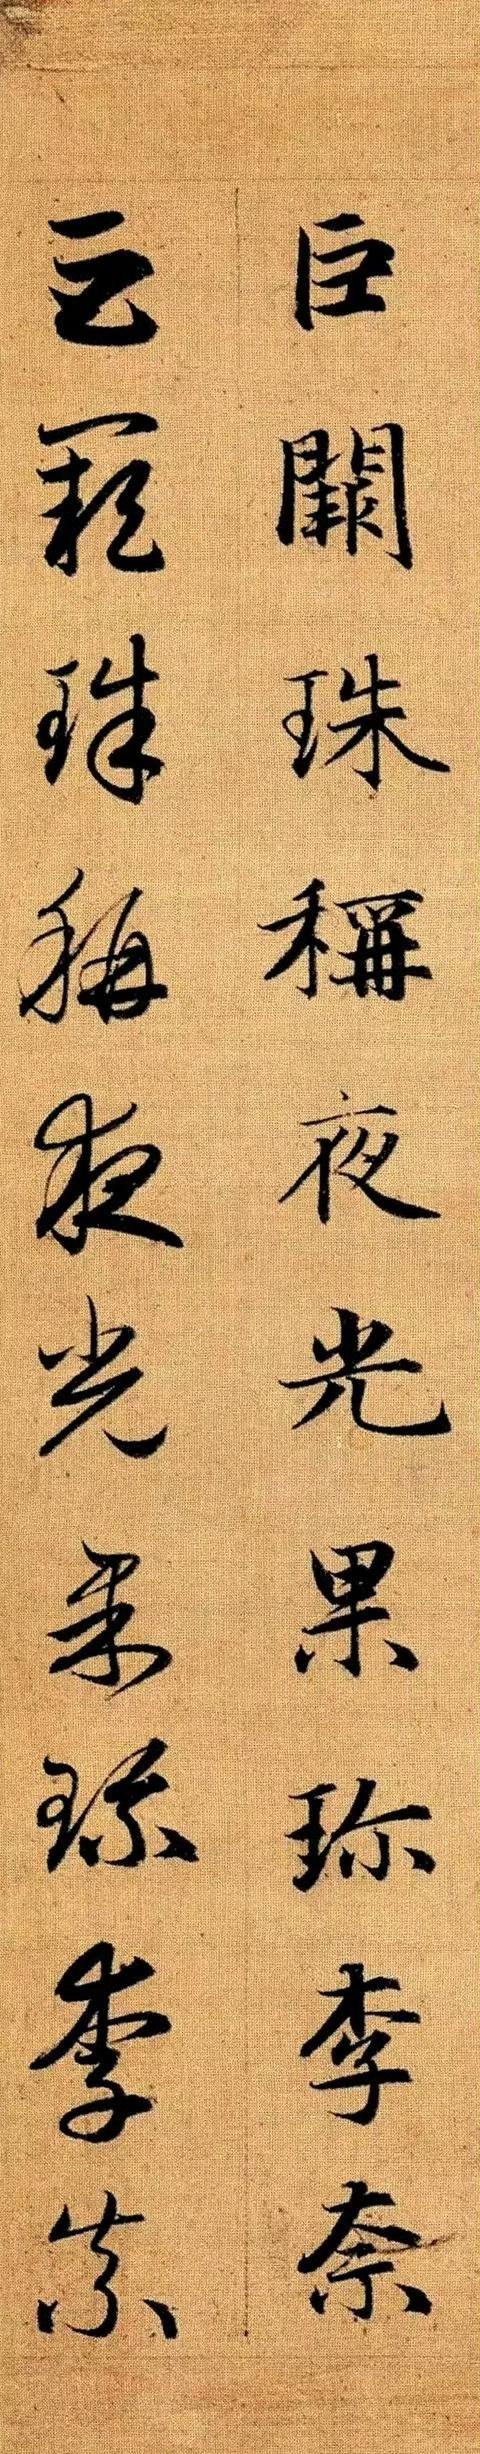 巨闕珠稱夜光果珍李柰
巨闕珠稱夜光果珍李柰